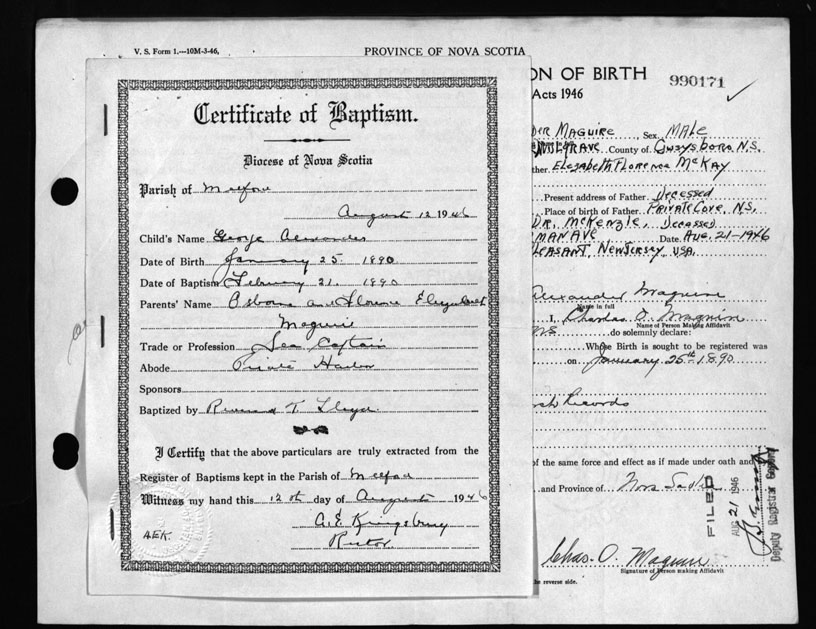 V. S. Form 1.—10M-3-46.
PROVINCE OF NOVA SCOTIA
ON OF BIRTH
990171
Acts 1946
Certificate of Baptism.
Diocese of Nova Scotia
Parish of
August 12 1946
Child's Name George Alexander
Date of Birth January 25 1890
Date of Baptism February 21. 1890
Parents' Name Osborne and Florence Elizabeth
Maguire
Trade or Profession Sea Captain
Abode Private Harbor
Sponsors
Baptized by Reverend T. Lloyd
I Certify that the above particulars are truly extracted from the
Register of Baptisms kept in the Parish of
Witness my hand this 12th day of August 1946
A.E. Kingsbury
Rector
AEK.
der Maguire Sex Male
County of Guysboro N.S.
ther Elizabeth Florence McKay
Present address of Father Decessed
Place of birth of Father Private Cove, N.S.
Dr. McKenzie, Decessed
man Ave Date Aug. 21-1946
leasant, New Jersey, USA.
Alexander Maguire
Name in full
I, Charles O. Maguire
Name of Person Making Affidavit
N.S. do solemnly declare:
Whose Birth is sought to be registered was
on January 25th 1890
Records
of the same force and effect as if made under oath and
and Province of Nova Scotia
FILED
AUG 21 1946
Deputy Registrar General
Chas. O. Maguire
Signature of Person making Affidavit
he reverse side.